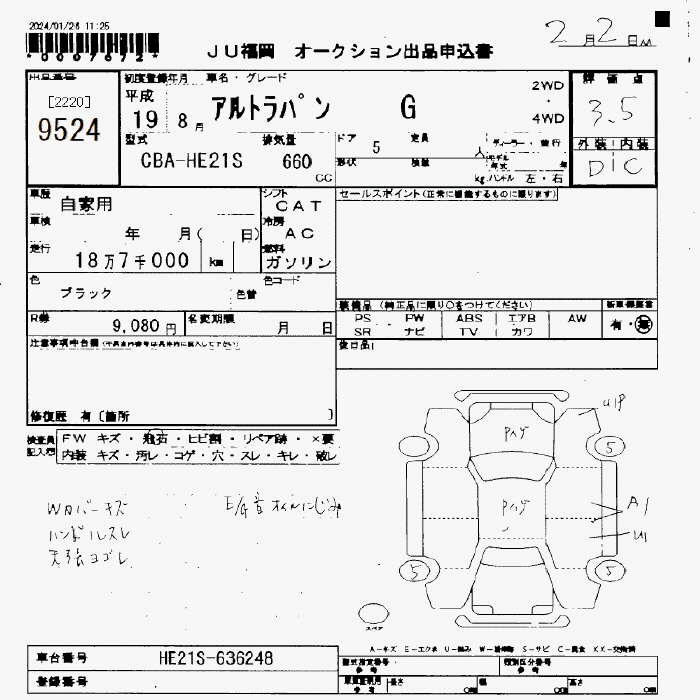 2024/01/26 11:25
*0007672*
JU福岡 オークション出品申込書
2月2日
出品番号
[2220]
9524
初度登録年月
平成
19
8月
車名・グレード
アルトラパン G
2WD
・
4WD
評価点
3.5
外装 内装
D C
型式
CBA-HE21S
排気量
660
CC
ドア
5
定員
人
形状
積載
kg
ディーラー・並行
モデル年式
年
ハンドル 左・右
車歴
自家用
車検
年 月( 日)
走行
18万7千000 km
シフト
CAT
冷房
AC
燃料
ガソリン
色
ブラック
色替
色コード
R券
9,080円
名変期限
月 日
セールスポイント(正常に機能するものに限ります)
装備品(純正品に限り○をつけてください)
PS PW ABS エアB AW
SR ナビ TV カワ
新車保証書
有・無
後日品
注意事項申告欄
修復歴 有[箇所 ]
検査員記入欄
FW キズ・飛石・ヒビ割・リペア跡・×要
内装 キズ・汚レ・コゲ・穴・スレ・キレ・破レ
Wカバーキズ
ハンドルスレ
天張ヨゴレ
E/G音オイルにじみ
U1P
パイゲ
パイゲ
5
5
5
A1
U1
スペア
A-キズ E-エクボ U-凹み S-サビ C-腐食 XX-交換済
車台番号
HE21S-636248
登録番号
型式指定番号
参考
類別区分番号
参考
参考
長さ
cm
幅
cm
高さ
cm